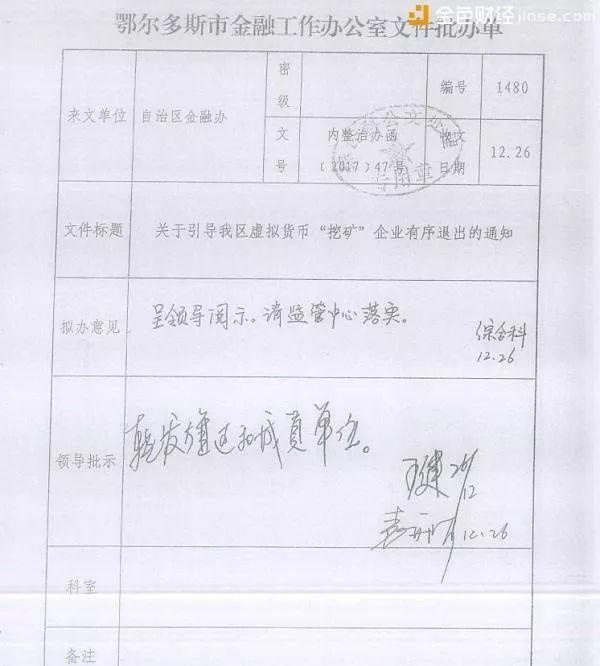 金色财经 jinse.com
鄂尔多斯市金融工作办公室文件批办单
来文单位 自治区金融办 密级 编号 1480
文号 内整治办函〔2017〕47号 收文日期 12.26
文件标题 关于引导我区虚拟货币“挖矿”企业有序退出的通知
拟办意见 呈领导阅示。请监管中心落实。
综合科
12.26
领导批示 转发旗区和成员单位。
26/12
12.26
科室
备注